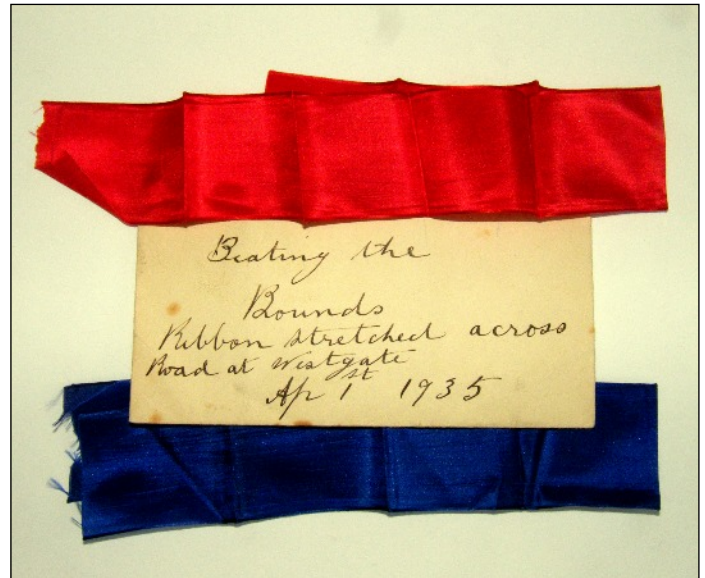 Beating the
Bounds
Ribbon stretched across
Road at Westgate
Ap 1st 1935